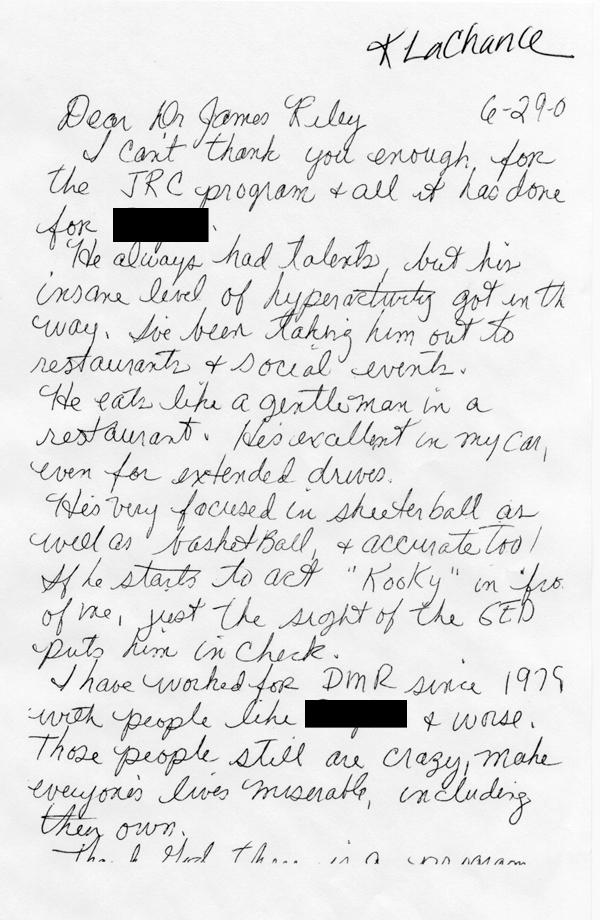 K LaChance
Dear Dr James Riley 6-29-0
I can't thank you enough for
the JRC program & all it has done
for
He always had talents, but his
insane level of hyperactivity got in th
way. I've been taking him out to
restaurants & social events.
He eats like a gentleman in a
restaurant. He's excellent in my car,
even for extended drives.
He's very focused in skeeterball as
well as basketBall, & accurate too!
If he starts to act "Kooky" in fro
of me, just the sight of the GED
puts him in check.
I have worked for DMR since 1979
with people like & worse.
Those people still are crazy, make
everyone's lives miserable, including
their own.
Thank God there is a program